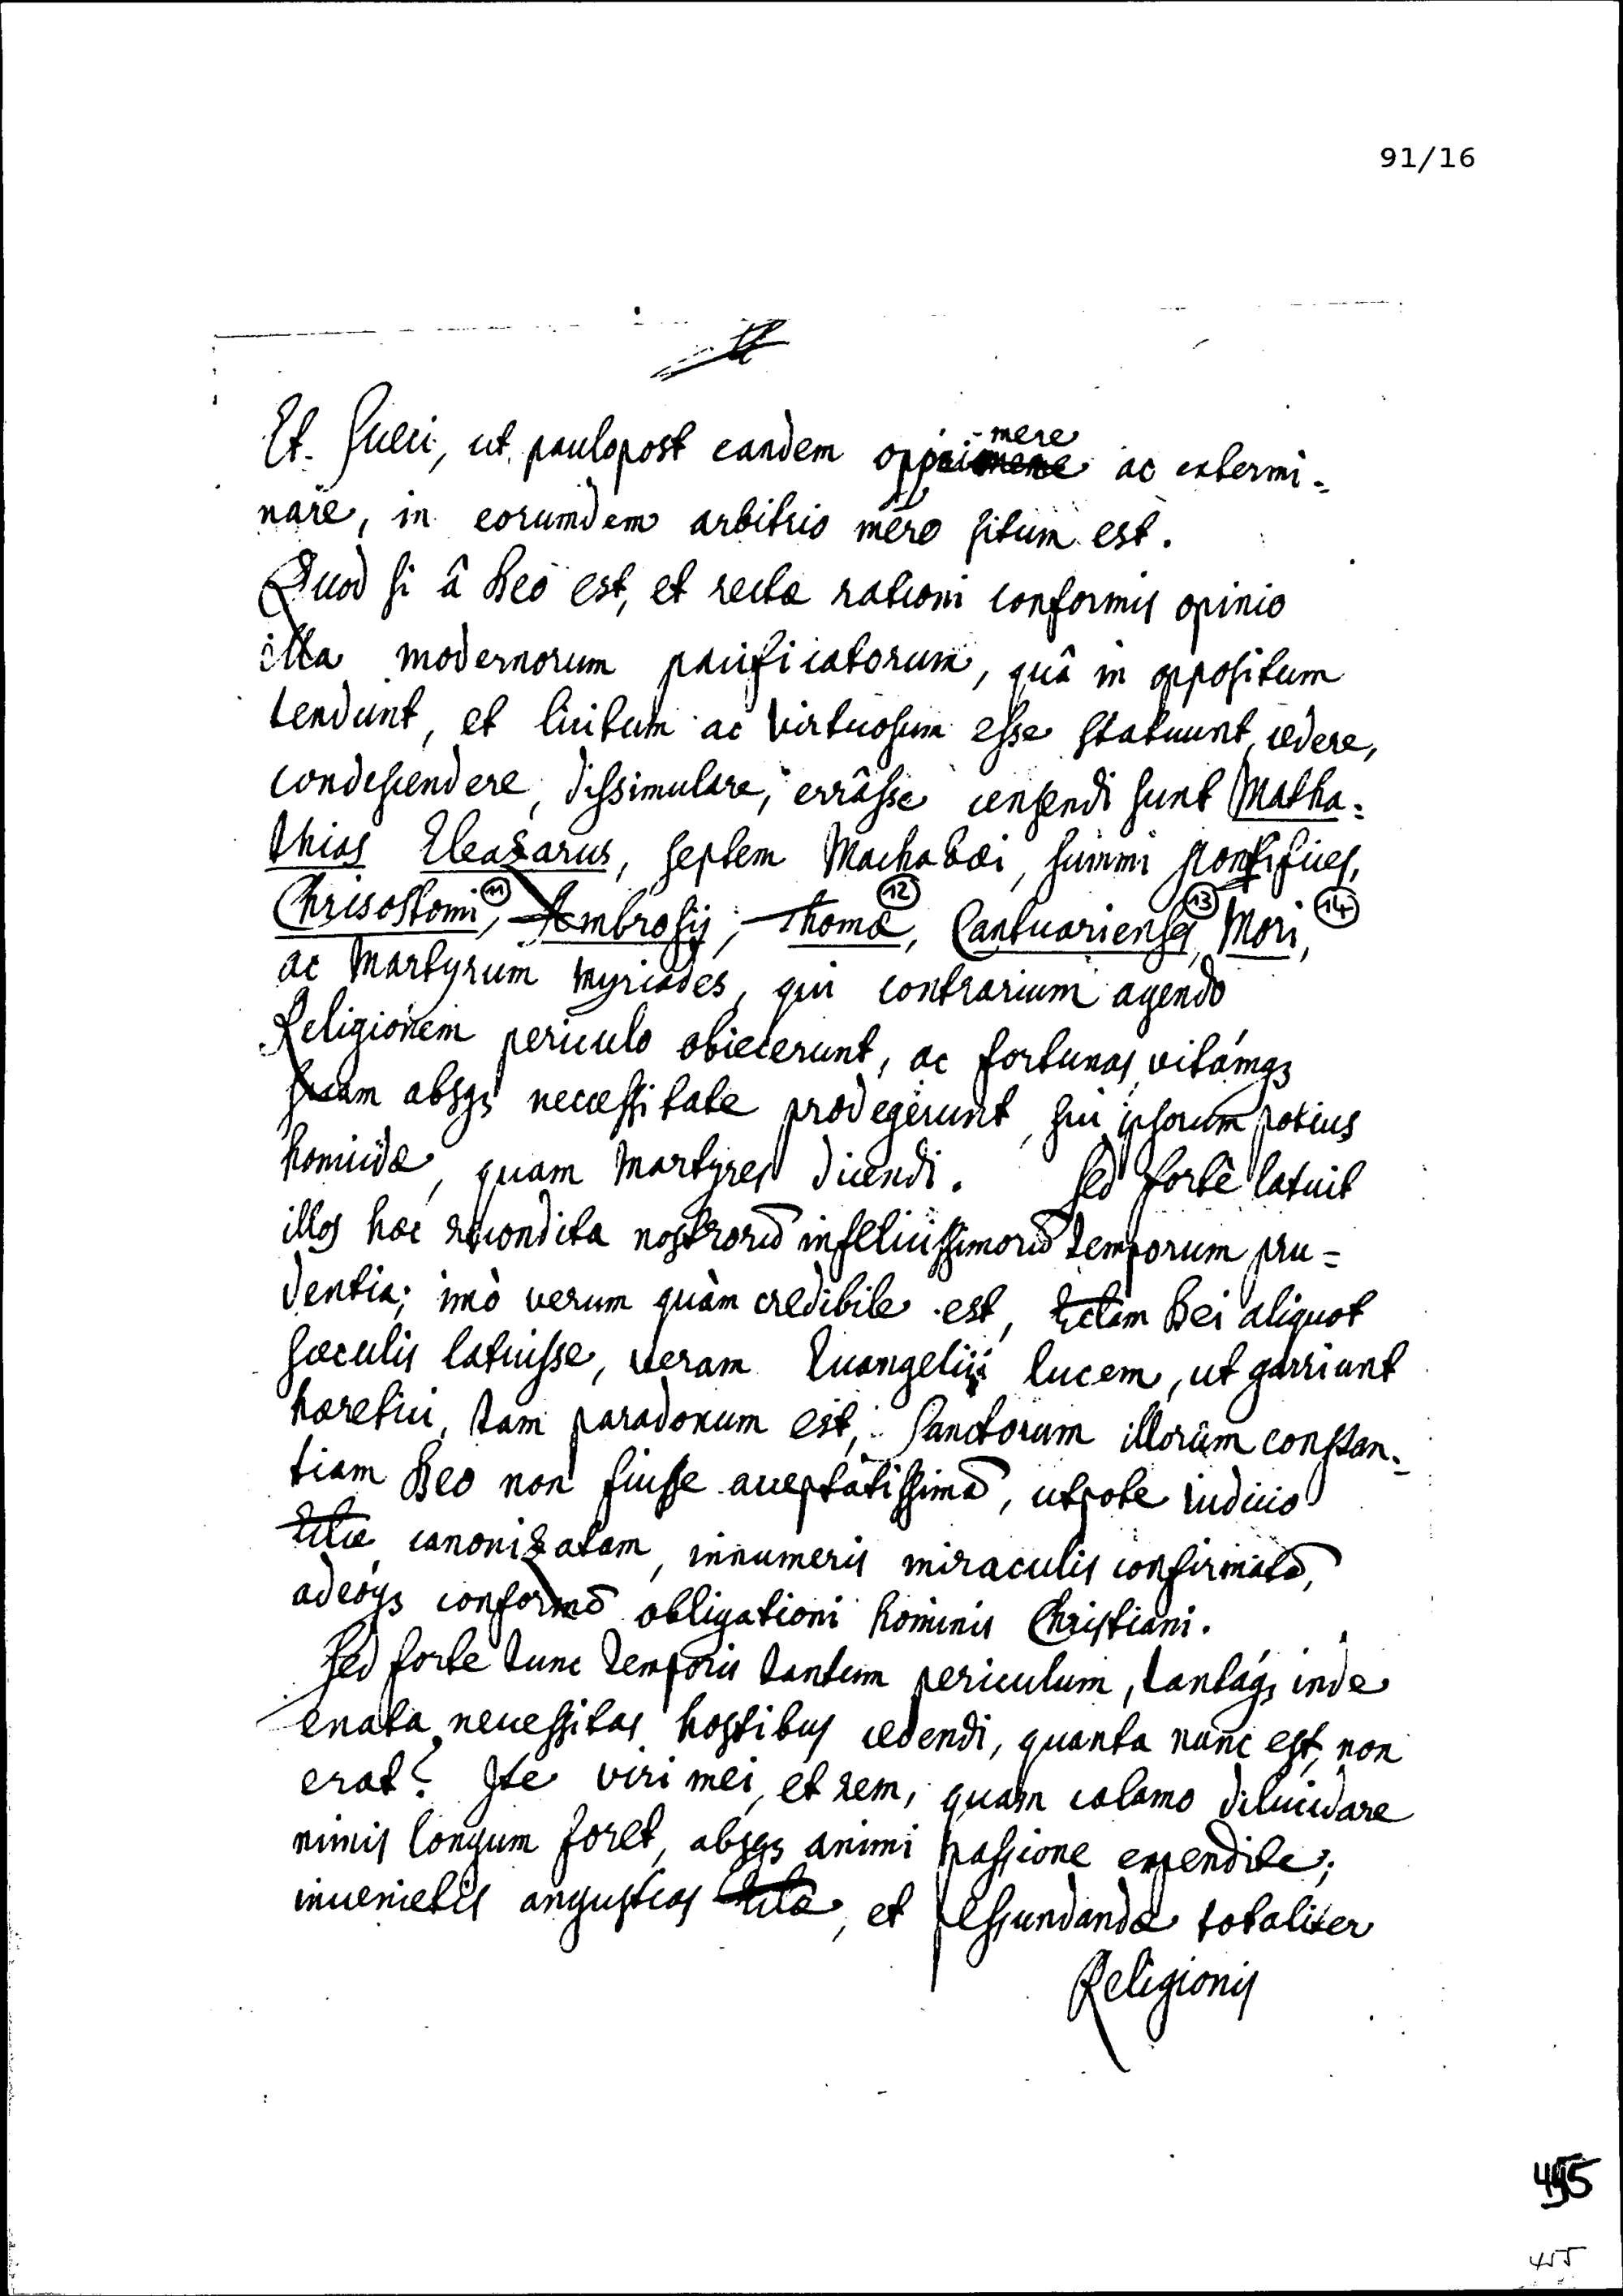 91/16
Et Sueci, ut paulopost eandem opprimere mere ac extermi=
nare, in eorumdem arbitrio mero situm est.
Quod si â Deo est, et rectæ rationi conformis opinio
illa modernorum pacificatorum, quâ in oppositum
tendunt, et licitum ac virtuosum esse statuunt, cedere,
condescendere, dissimulare, errâsse censendi sunt Matha=
thias Eleazarus, septem Machabæi, summi Pontifices,
Chrisostomi ⑪, Ambrosij, Thomæ ⑫, Cantuarienses ⑬, Mori, ⑭
ac Martyrum myriades, qui contrarium agendo
Religionem periculo obiecerunt, ac fortunas, vitámq3
suam absq3 necessitate prodegerunt, sui ipsorum potius
homicidæ, quam Martyres dicendi. Sed fortè latuit
illos hæc recondita nostrorū infelicissimorū temporum pru=
dentia; imò verum quàm credibile est, Ecclam Dei aliquot
sæculis latuisse, veram Euangelij lucem, ut garriunt
hæretici, tam paradoxum est, Sanctorum illorum constan=
tiam Deo non fuisse acceptatissimā, utpote iudicio
Eccliæ canonizatam, innumeris miraculis confirmatā,
adeóq3 conformē obligationi hominis Christiani.
Sed forte tunc temporis tantum periculum, tantáq3 inde
enata necessitas hostibus cedendi, quanta nunc est, non
erat? Ite viri mei, et rem, quam calamo dilucidare
nimis longum foret, absq3 animi passione expendite;
inuenietis angustias Eccliæ, et pessundandæ totaliter
Religionis
495
455